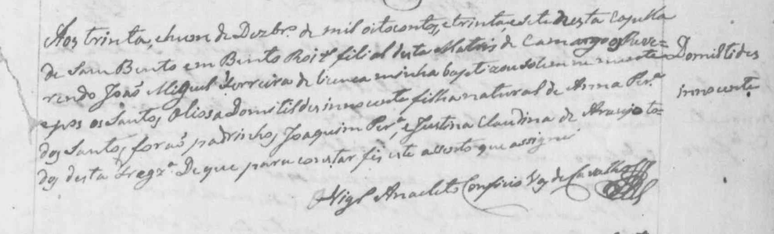 Aos trinta, e hum de Dezbr.o de mil oitocentos, e trinta e sete nesta Capella
de Sam Bento em Bento Roiz filial desta Matris de Camargos o Reve-
rendo João Miguel Ferreira de licença minha baptizou solemnemente
e pos os Santos Oleos a Domitildes innocente filha natural de Anna Per.a
dos Santos, forão padrinhos Joaquim Per.a, e Justina Claudina de Araujo to-
dos desta Freg.a De que para constar fis este assento que assignei
Vigr.o Anacleto
de Carvalho
Domiltides
innocente